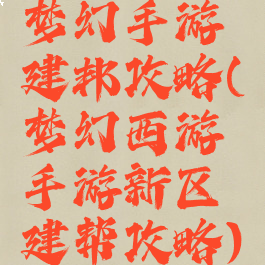 梦幻手游
建邦攻略(
梦幻西游
手游新区
建帮攻略)